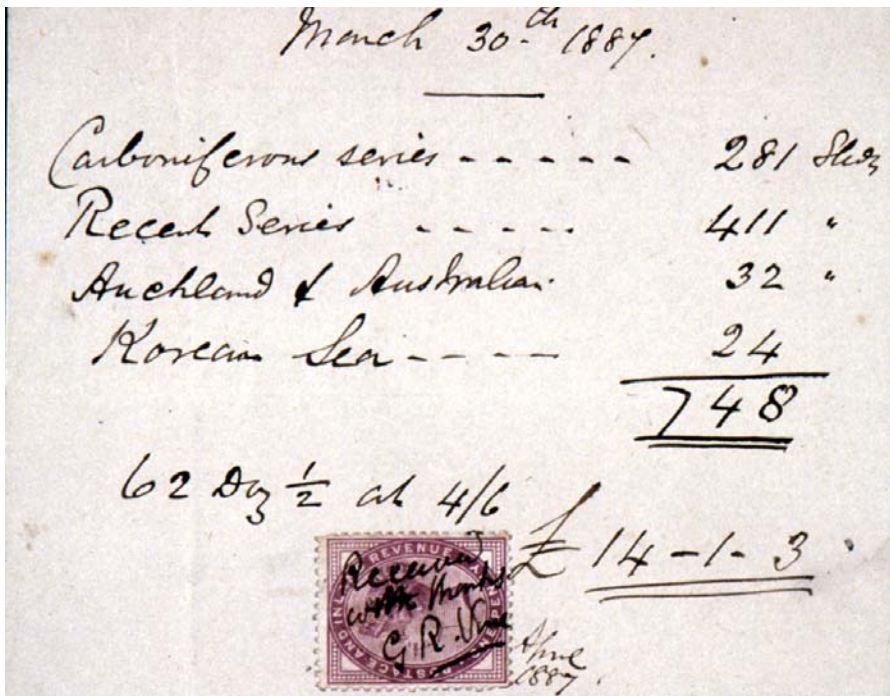 March 30th 1887.
Carboniferous series - - - - - 281 Slids
Recent Series - - - - - 411 "
Auckland & Australian 32 "
Korean Sea - - - - 24
748
62 Doz ½ at 4/6
£ 14-1-3
POSTAGE AND INLAND REVENUE ONE PENNY
Received
with thanks
G R Vine
April
1887